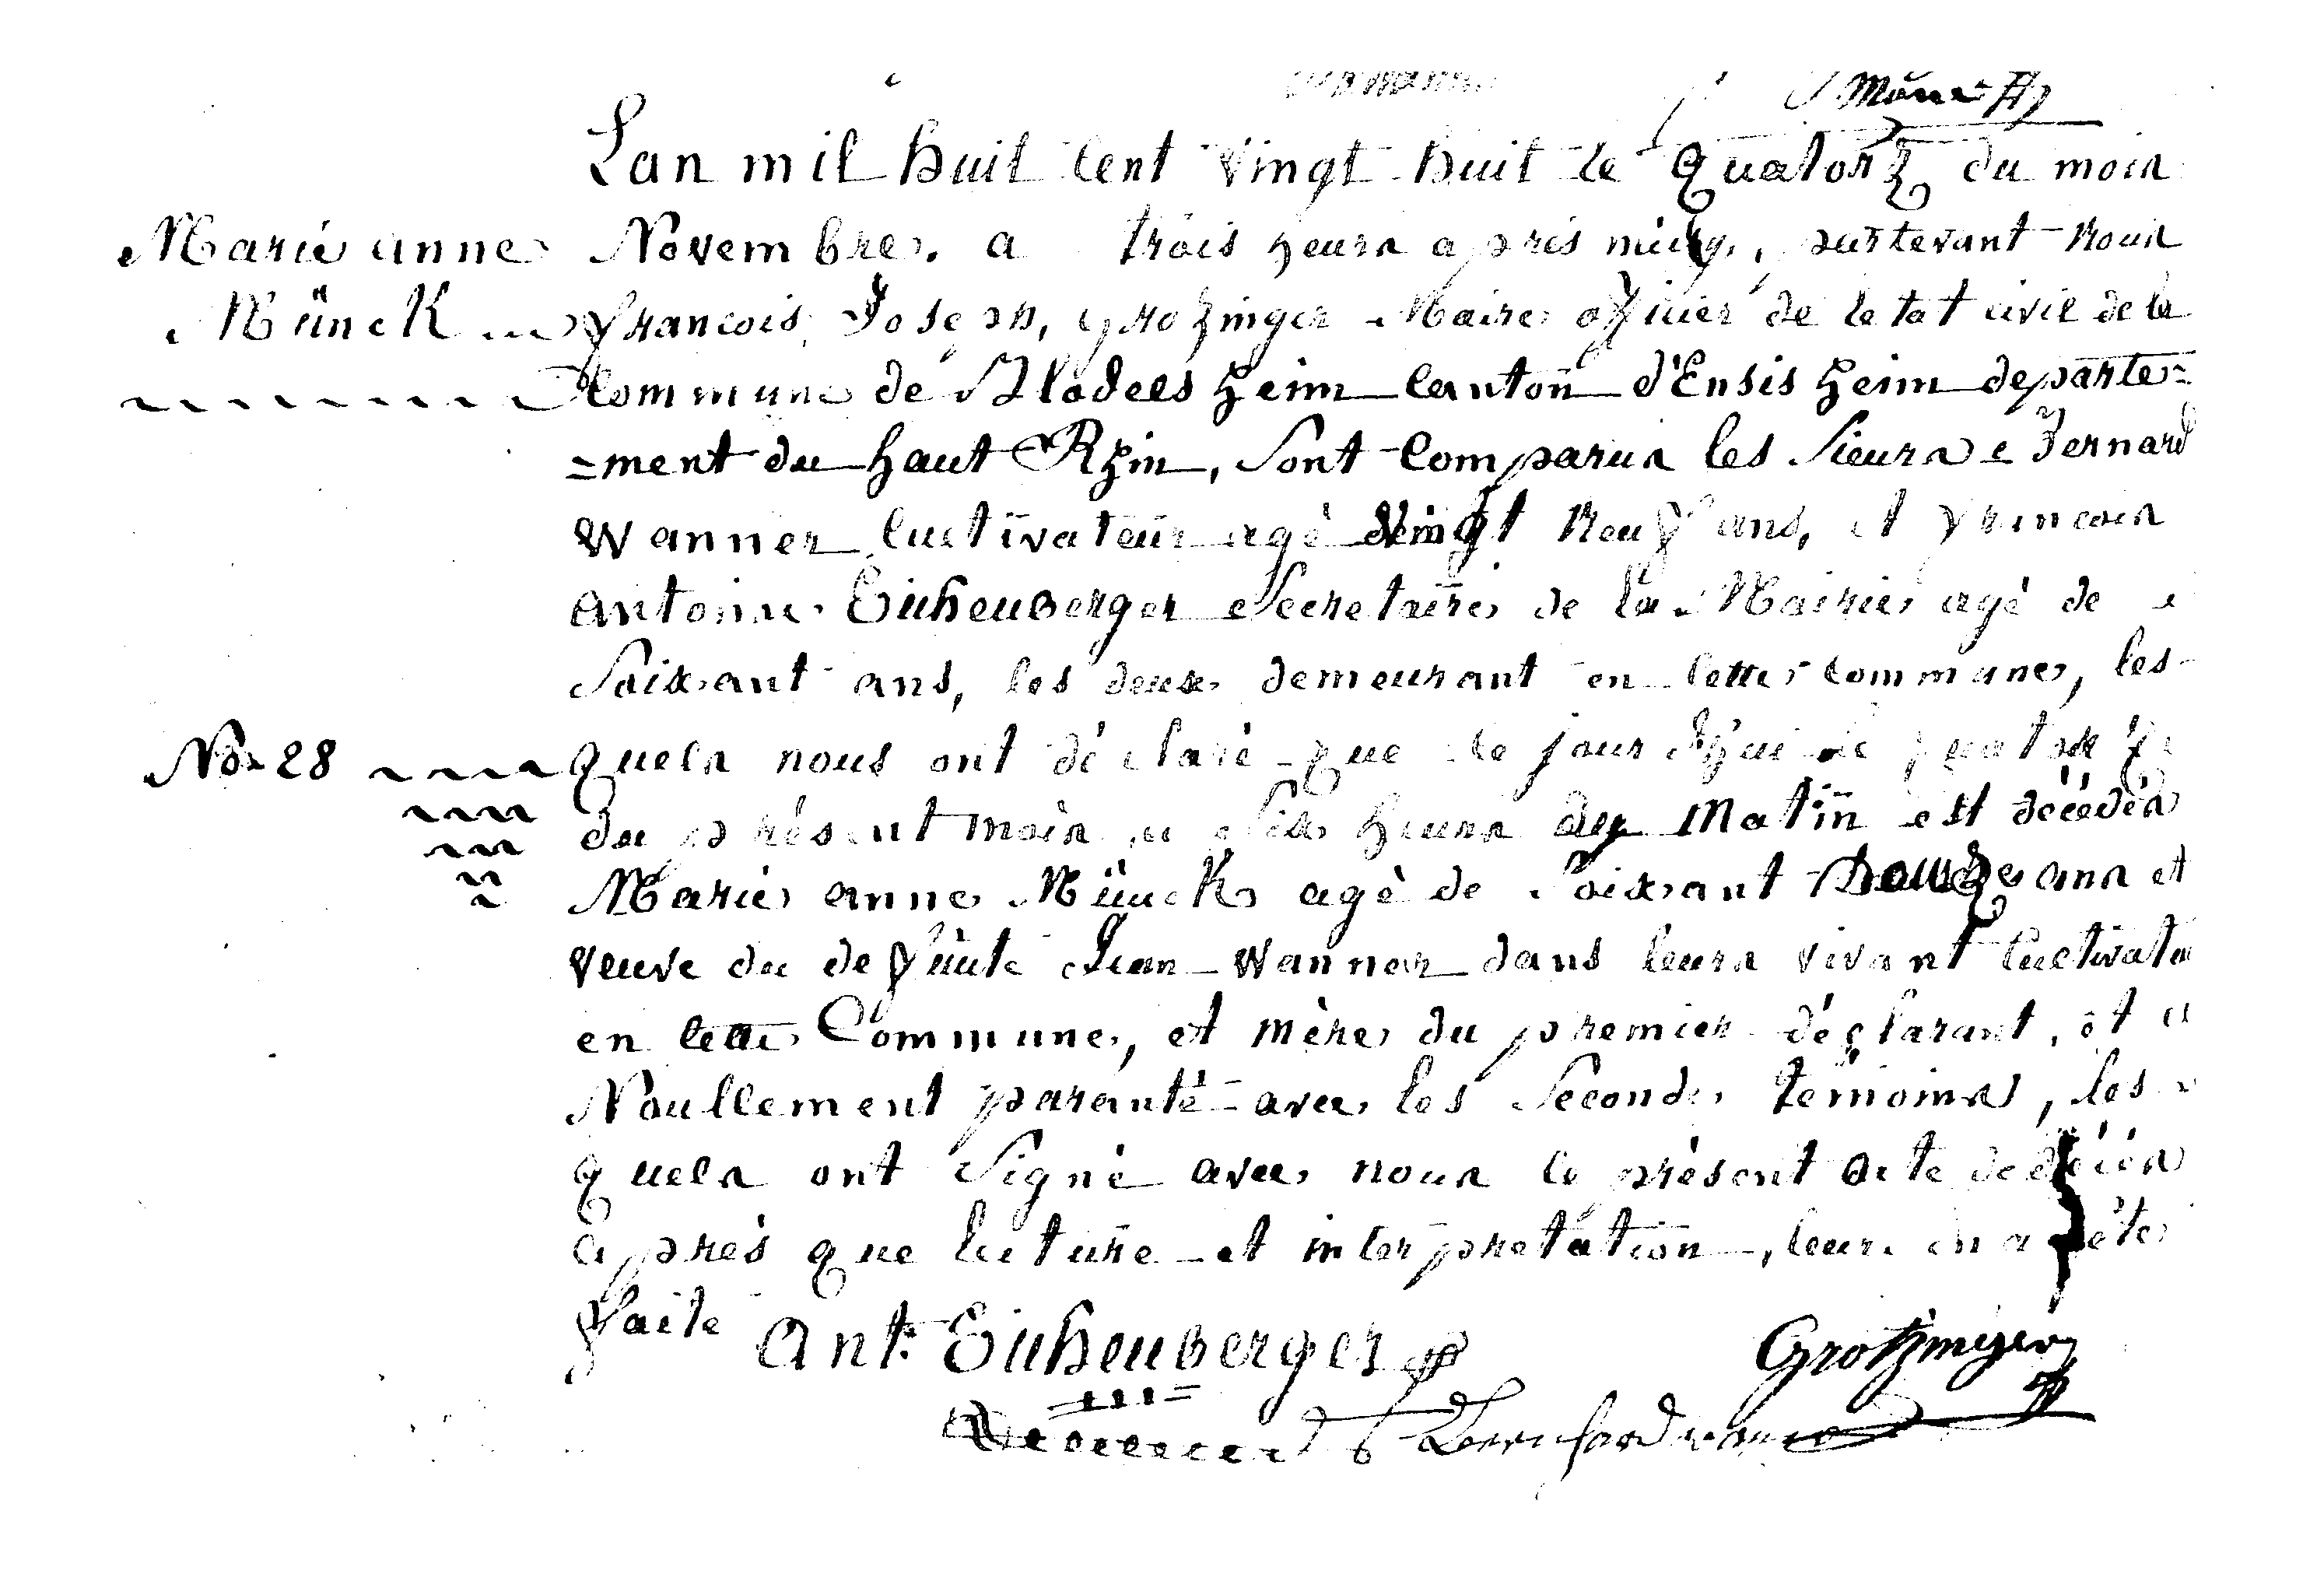 Münck
Lan mil huit Cent Vingt huit le quatorz du mois
Marie anne
Novembre. a trois heurs apres midy, partevant nous
Münck
francois Joseph, grozinger Maire officier de letat civil de la
Commune de Blodelsheim Canton d'Ensisheim departe=
=ment du haut Rhin, Sont Comparus les Sieurs Bernard
Wanner Cultivateur agé Vingt Neuf ans, et francois
Antoine Eichenberger Secretaire de la Mairie agé de
Soixant ans, les deux demeurant en Cette Commune, les
No. 28
quels nous ont déclaré que le jour d'hui le quatorz
du présent mois a Six heurs du Matin est décédés
Marie anne Münck agé de Soixant Douze ans et
veuve du defunte Jean Wanner dans leurs vivant Cultivate
en Cette Commune, et mère du premier déclarant, et
Noullement paranté avec les Seconde témoins, les
quels ont Signé avec nous le présent acte de décés
après que lecture et interpretation, leurs en a été
faite
Ant. Eichenberger
Grotzinger
Bernhard wanner